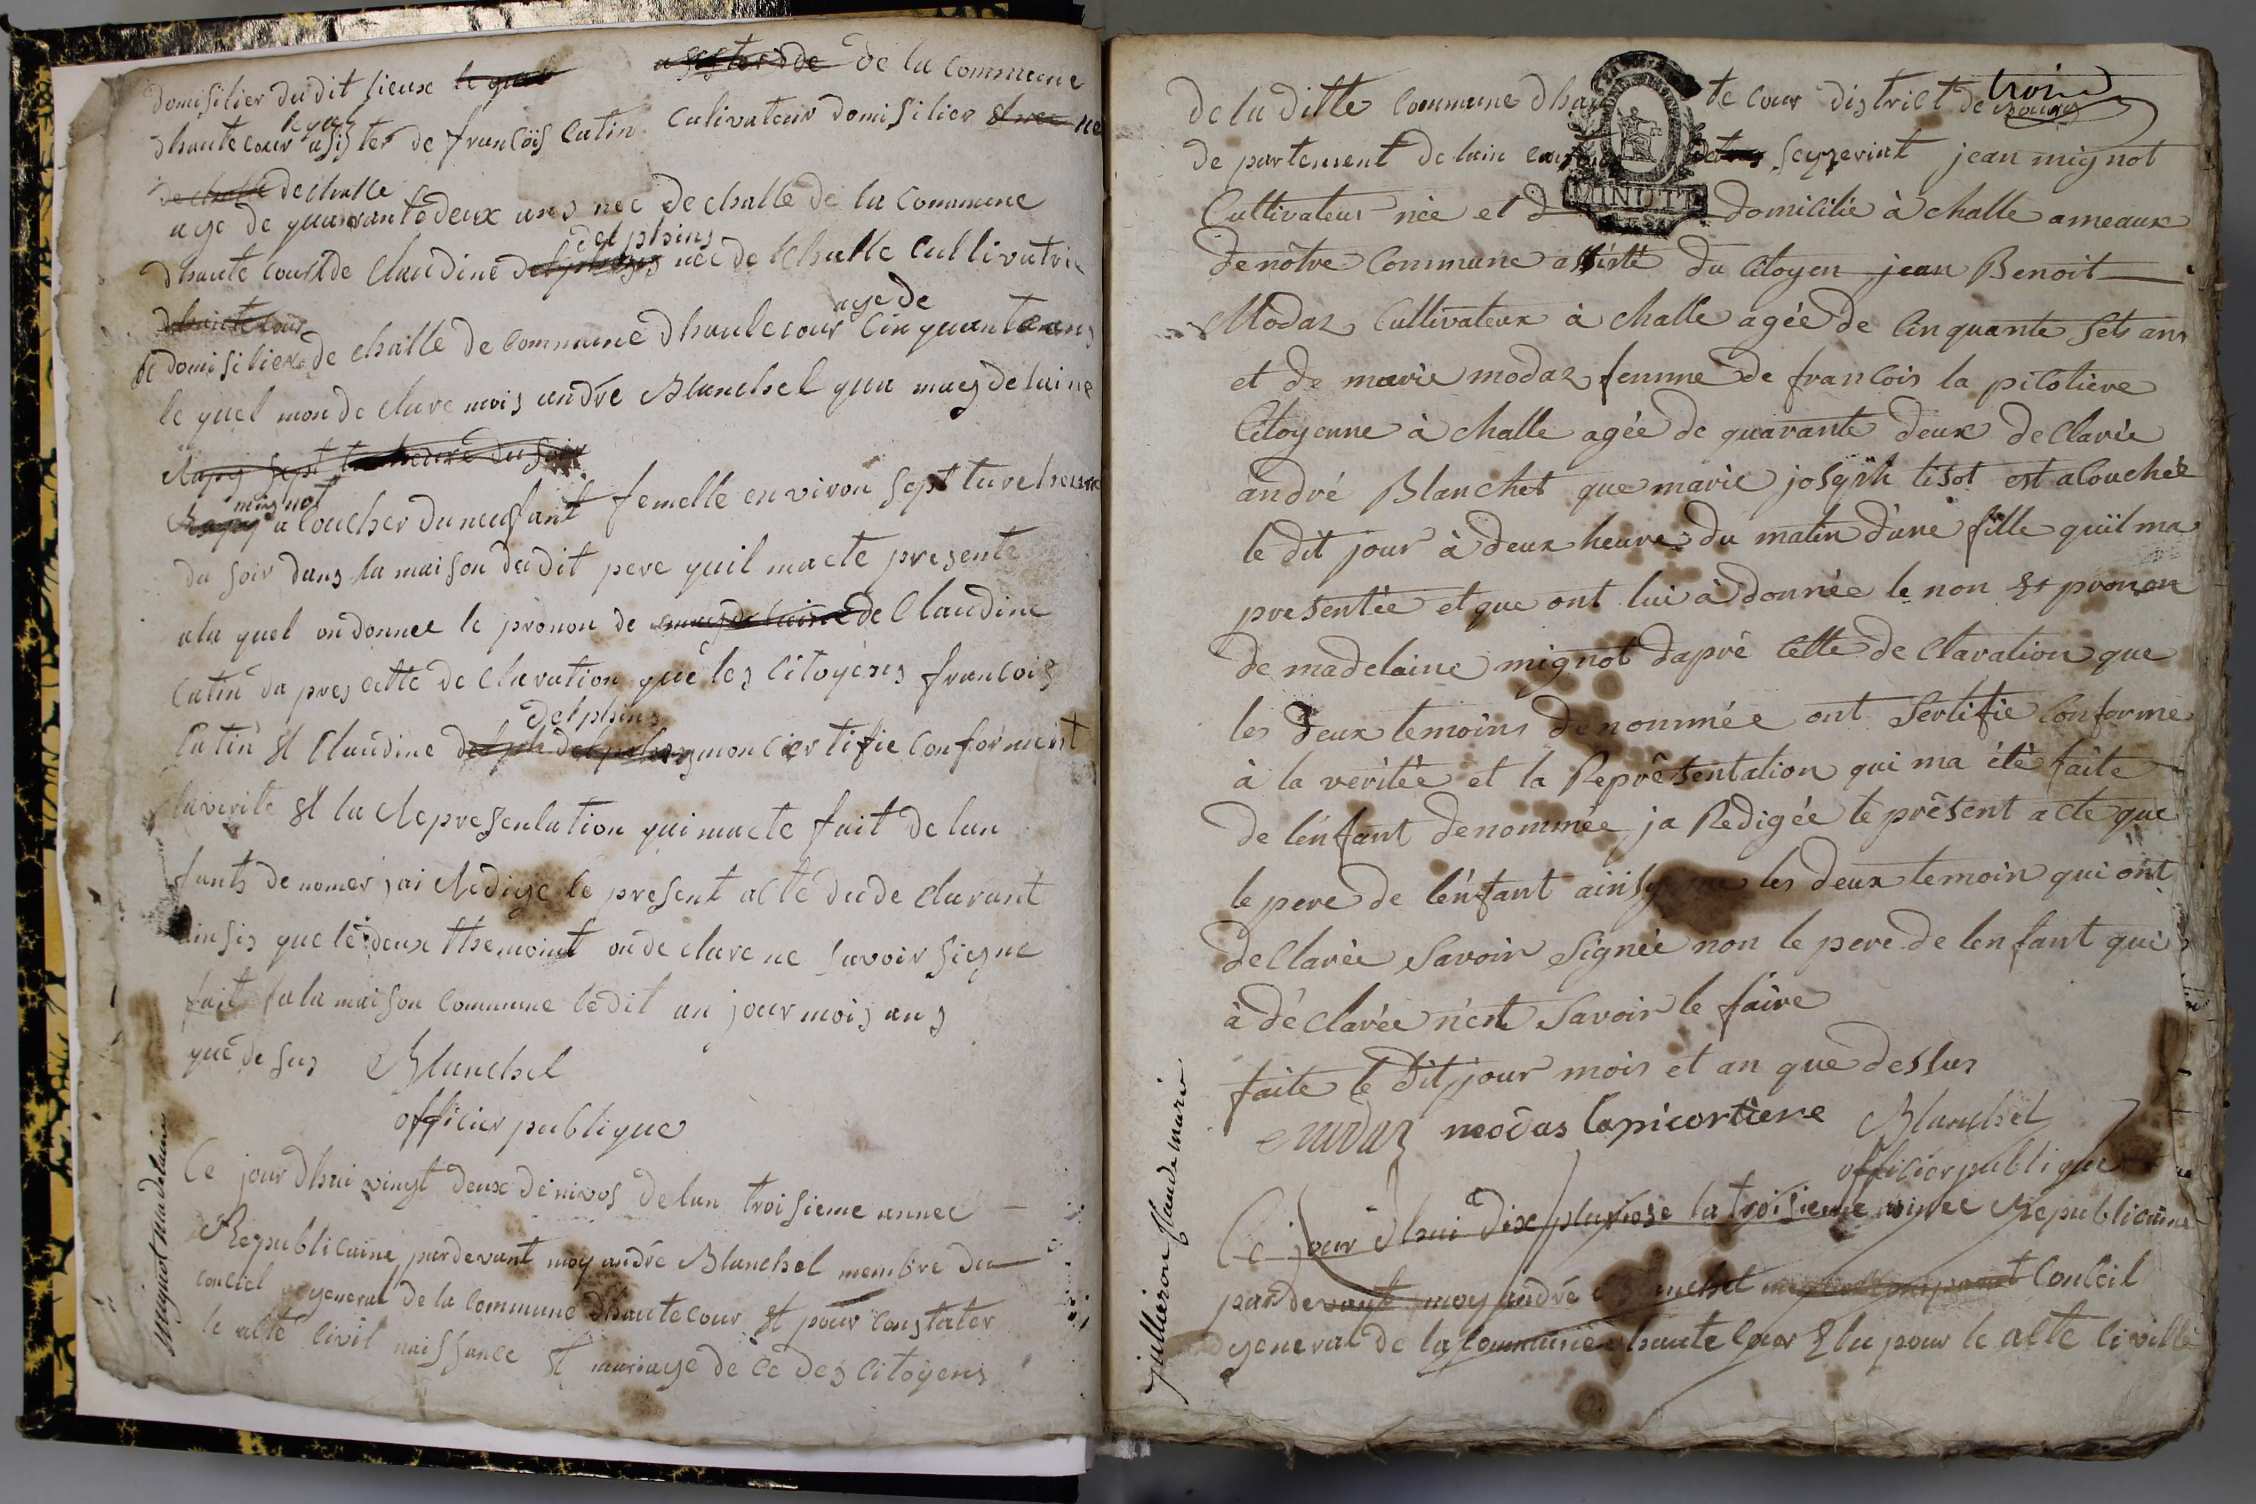 domisilier dudit lieux le quel a sister de de la commune
dhaute cour le quel asister de françois Catin Culivateur domisilier et nee ne
de challe de challe
age de quarante deux ans nee de challe de la Commune
dhaute cour et de Claudine delphins née de Challe Cullivatric
dhaute cour
et domisiliere de challe de Commune dhautecour age de Cinquante ans
le quel mon de clare mois andré Blanchel qua magdelaine
Chapuy sept tu heure du soir
mignot a coucher du neusfant femelle environ sept ture heure
du soir dans la maison dudit pere quil macte presente
ala quel on donnee le pronon de magdelaine de Claudine
Catin da pres cette de Claration que les Citoyens francois
Catin et Claudine delphins mon ciertifie conforment
la verite et la Representation qui macte fait de lan
fants de nomer jai Redige le present acte du de clarant
ainsis que le deux themoint on de clare ne savoir siegne
fait a la maison commune le dit an jour mois ans
que de sus Blanchel
officier publique
mignot madelaine
Ce jour dhui vingt deux de nivos de lan troisieme annee
Republicaine, pardevant moy andré Blanchel membre du
conciel general de la Commune dhautecour et pour constater
le acte Civil naissance et mariage de ce des Citoyens
de la ditte Commune dhaute cour district de bourg
troin
MINUTE
de partement de lain seyzeriat jean mignot
Cultivateur née et domicilié à challe ameaux
de nôtre Commune assisté du Citoyen jean Benoit
Modaz Cultivateur à challe agée de Cinquante Sets ans
et de marie modaz femme de francois la picotiere
Citoyenne à challe agée de quarante deux declarée
andré Blanchet que marie josepth tisot est acouchée
le dit jour à deux heure du matin d'une fille quil ma
presentée et que ont lui à donnée le non et pronon
de madelaine mignot dapré Cette de Claration que
les deux temoins denommée ont Sertifie Conforme
à la veritée et la Représentation qui ma été faite
de l'énfant denommée ja Redigée le présent acte que
le pere de l'énfant ainsy que les deux temoin qui ont
declarée savoir signée non le pere de lenfant qui
à déclarée n'ent savoir le faire
faite le dit jour mois et an que dessus
modaz modas lapicortiere Blanchel
officier publique
juillieron Claude marie
Ce jour dhui dix pluviose la troisieme annee Republicaine
par devant moy andré Blanchel conceil
general de la Commune dhaute Cour Elu pour le alte civille